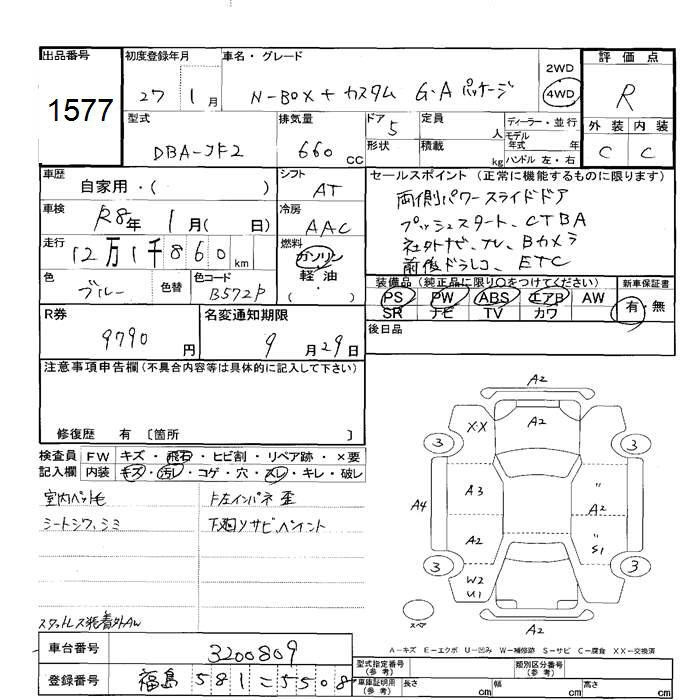 出品番号
1577
初度登録年月
27 1月
車名・グレード
N-BOX+カスタム G・Aパッケージ
2WD
4WD
評価点
R
型式
DBA-JF2
排気量
660 CC
ドア 5
形状
定員 人
積載 kg
ディーラー・並行
モデル年式 年
ハンドル 左・右
外装 内装
C C
車歴
自家用・( )
シフト
AT
車検
R8年 1月( 日)
冷房
AAC
走行
12万1千860km
燃料
ガソリン
軽油
( ・ )
色
ブルー
色替
色コード
B572P
セールスポイント(正常に機能するものに限ります)
両側パワースライドドア
プッシュスタート、CTBA
社外ナビ、TV、Bカメラ
前後ドラレコ、ETC
装備品(純正品に限り○をつけてください)
PS PW ABS エアB AW
SR ナビ TV カワ
新車保証書
有・無
後日品
R券
9790 円
名変通知期限
9月29日
注意事項申告欄(不具合内容等は具体的に記入して下さい)
修復歴 有 〔箇所 〕
検査員記入欄
FW キズ・飛石・ヒビ割・リペア跡・×要
内装 キズ・汚レ・コゲ・穴・スレ・キレ・破レ
室内ペット毛
シートシワ、シミ
下廻リサビペイント
スタットレス装着外AW
A2
XX
A2
3
3
A3
"
A4
A2
A2
"
S1
3
3
W2
U1
スペア
A2
A-キズ E-エクボ U-凹み W-補修跡 S-サビ C-腐食 XX-交換済
車台番号
3200809
登録番号
福島 581 こ 5508
型式指定番号(参考)
類別区分番号(参考)
車庫証明用(参考)
長さ cm 幅 cm 高さ cm